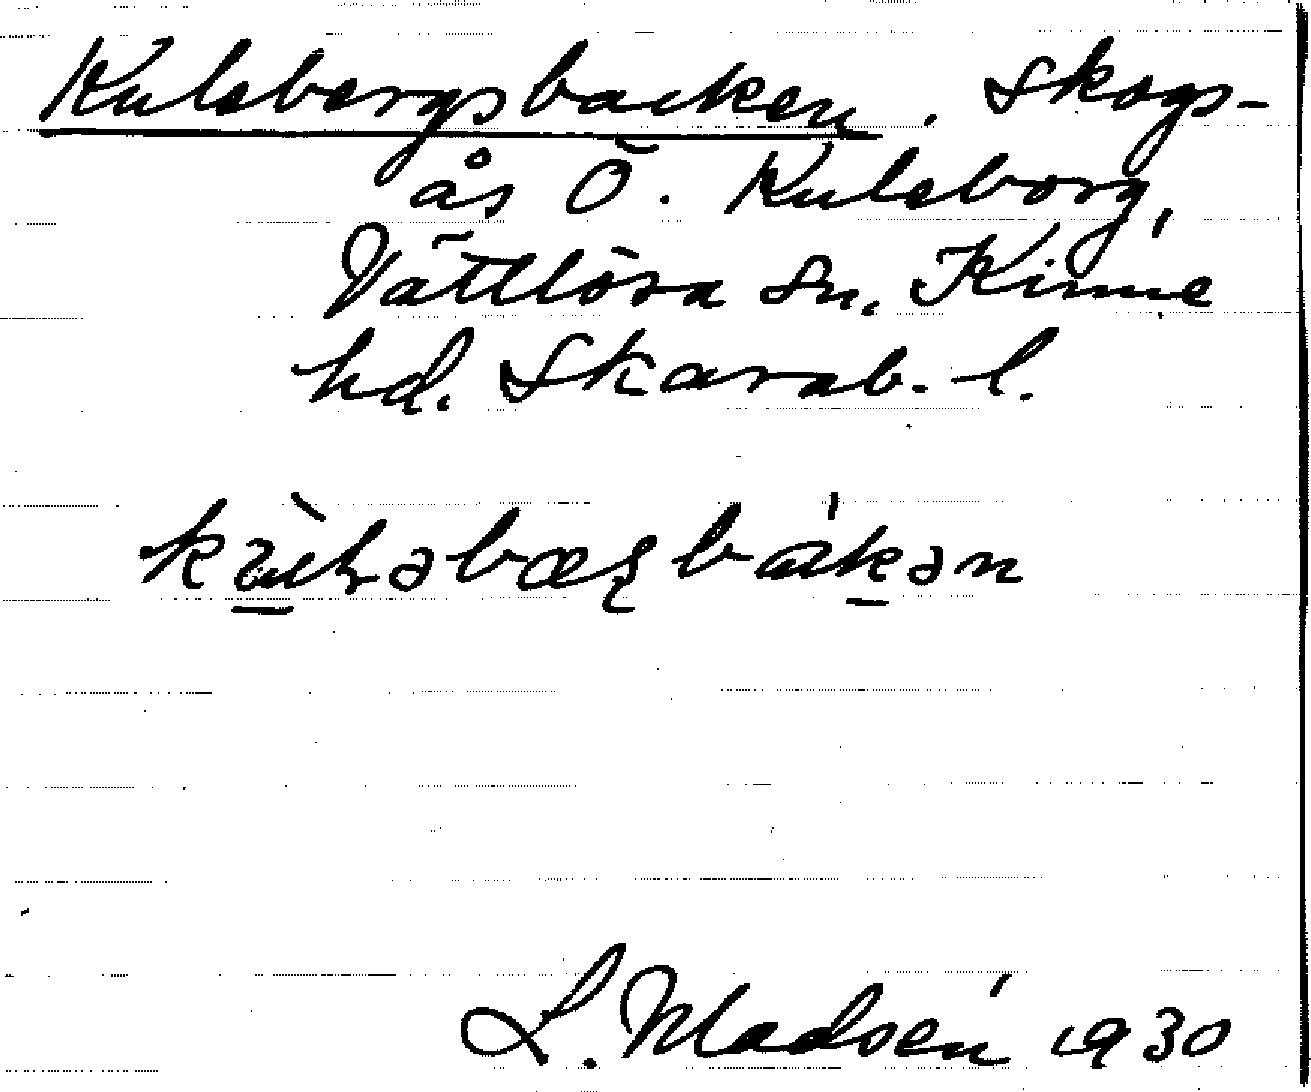 Kulebergsbacken. Skogs-
ås Ö. Kuleborg,
Vättlösa sn. Kinne
hd. Skarab. l.
L. Madsén 1930